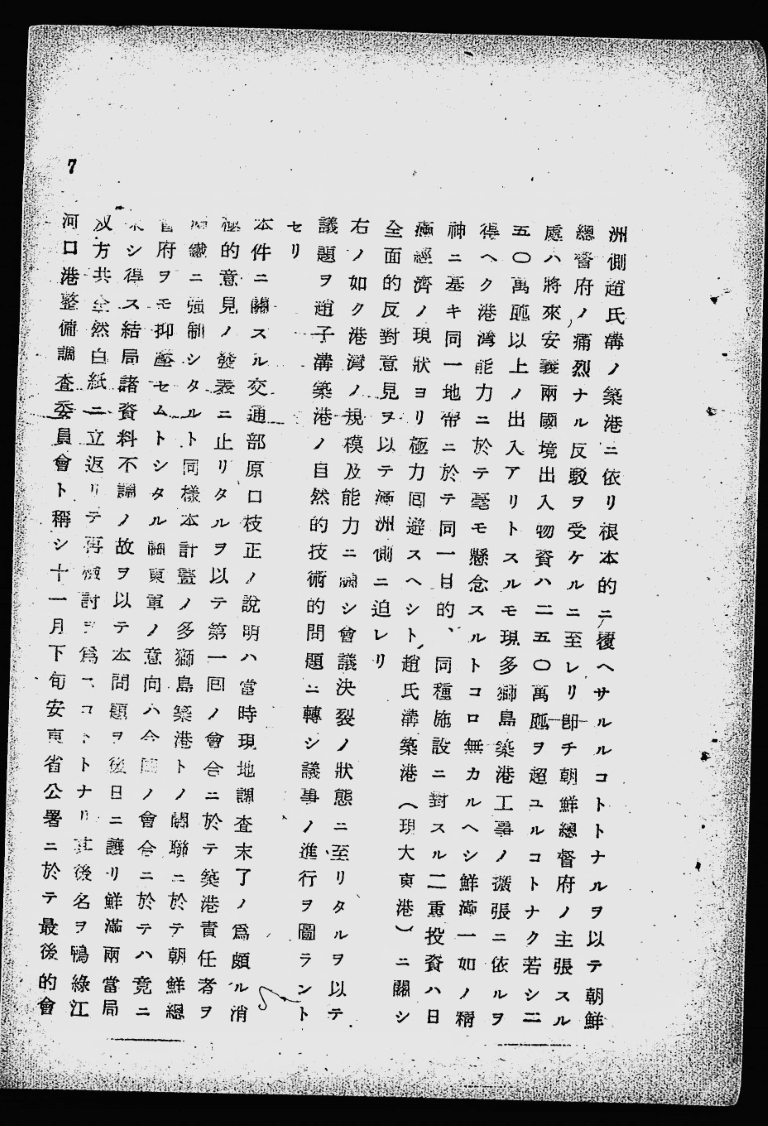 7
洲側趙氏溝ノ築港ニ依リ根本的ニ覆ヘサルルコトトナルヲ以テ朝鮮
總督府ノ痛烈ナル反駁ヲ受ケルニ至レリ卽チ朝鮮總督府ノ主張スル
處ハ將來安義兩國境出入物資ハ二五〇萬瓲ヲ超ユルコトナク若シ二
五〇萬瓲以上ノ出入アリトスルモ現多獅島築港工事ノ擴張ニ依ルヲ
得ヘク港灣能力ニ於テ毫モ懸念スルトコロ無カルヘシ鮮滿一如ノ精
神ニ基キ同一地帶ニ於テ同一目的、同種施設ニ對スル二重投資ハ日
滿經濟ノ現狀ヨリ極力囘避スヘシト趙氏溝築港(現大東港)ニ關シ
全面的反對意見ヲ以テ滿洲側ニ迫レリ
右ノ如ク港灣ノ規模及能力ニ關シ會議決裂ノ狀態ニ至リタルヲ以テ
議題ヲ趙子溝築港ノ自然的技術的問題ニ轉シ議事ノ進行ヲ圖ラント
セリ
本件ニ關スル交通部原口枝正ノ說明ハ當時現地調査未了ノ爲頗ル消
極的意見ノ發表ニ止リタルヲ以テ第一囘ノ會合ニ於テ築港責任者ヲ
沈鐵ニ強制シタルト同樣本計畫ノ多獅島築港トノ關聯ニ於テ朝鮮總
督府ヲモ抑壓セムトシタル關東軍ノ意向ハ今囘ノ會合ニ於テハ竟ニ
シ得ス結局諸資料不調ノ故ヲ以テ本問題ヲ後日ニ讓リ鮮滿兩當局
双方共全然白紙ニ立返リテ再檢討ヲ爲スコトトナリ其後名ヲ鴨綠江
河口港整備調査委員會ト稱シ十一月下旬安東省公署ニ於テ最後的會